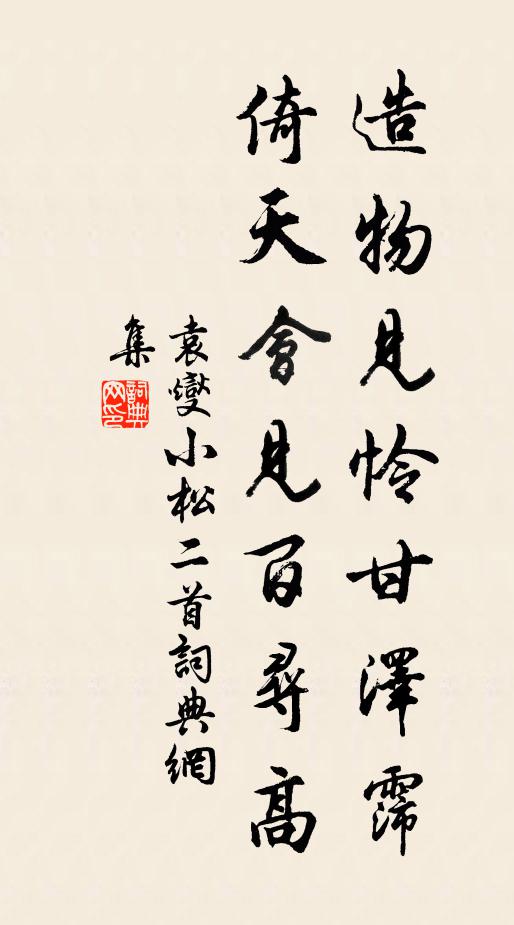 造物見怜甘澤霈
倚天會見百尋高
袁燮小松二首詞典網
集
詞典
网印